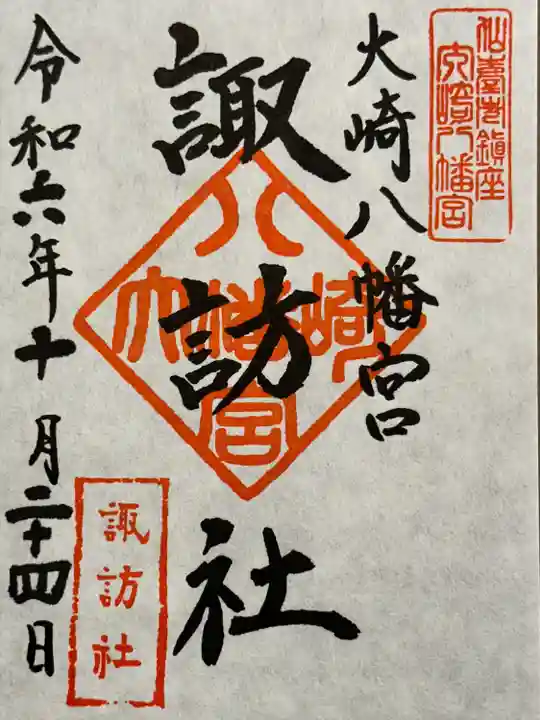 仙臺市鎮座
大崎八幡宮
大崎八幡宮
諏訪社
八幡宮
大崎
諏訪社
令和六年十月二十四日